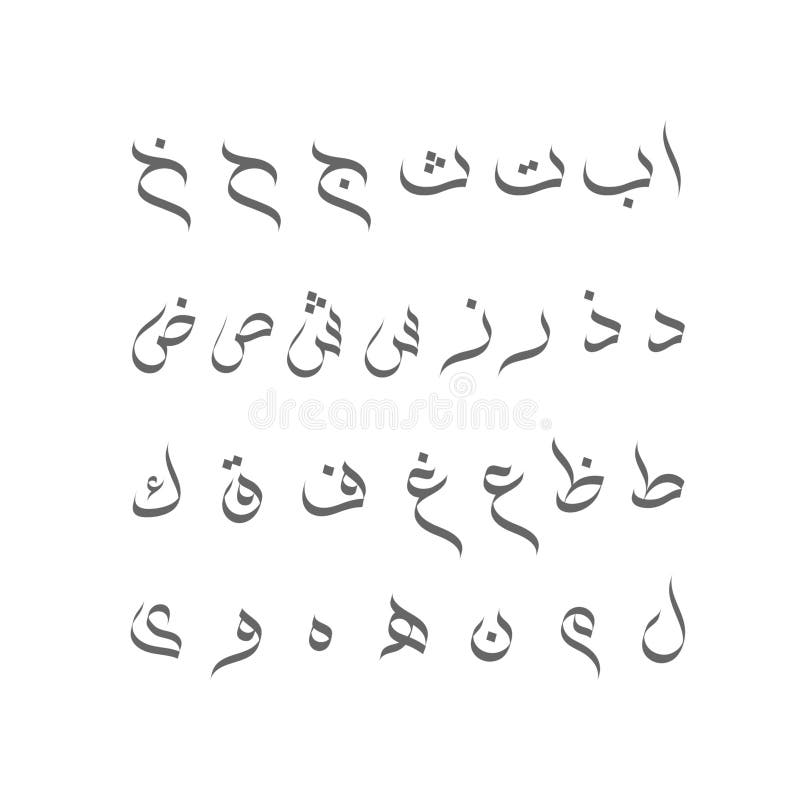 ا ب ت ث ج ح خ
د ذ ر ز س ش ص ض
ط ظ ع غ ف ق ك
ل م ن ه ه و ى
dreamstime